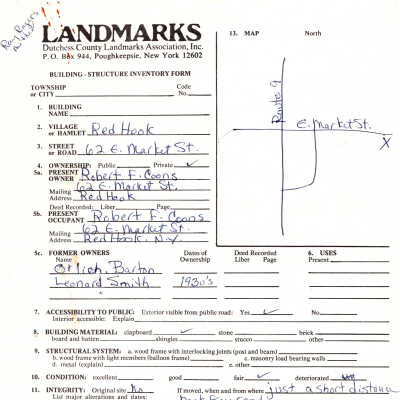 LANDMARKS
Dutchess County Landmarks Association, Inc.
P. O. Box 944, Poughkeepsie, New York 12602
BUILDING - STRUCTURE INVENTORY FORM
TOWNSHIP
or CITY
Code
No.
1. BUILDING
NAME
2. VILLAGE
or HAMLET Red Hook
3. STREET
or ROAD 62 E. Market St.
4. OWNERSHIP: Public Private ✓
5a. PRESENT
OWNER Robert F. Coons
Mailing 62 E. Market St.
Address Red Hook
Deed Recorded: Liber Page
5b. PRESENT
OCCUPANT Robert F. Coons
Mailing 62 E. Market St.
Address Red Hook, N.Y.
13. MAP North
Route 9
E. Market St.
X
5c. FORMER OWNERS Dates of Deed Recorded 6. USES
Name Ownership Liber Page Present:
Barton
Leonard Smith 1930's
7. ACCESSIBILITY TO PUBLIC: Exterior visible from public road: Yes ✓ No
Interior accessible Explain
8. BUILDING MATERIAL: clapboard ✓ stone brick
board and batten shingles stucco other
9. STRUCTURAL SYSTEM: a. wood frame with interlocking joints (post and beam)
b. wood frame with light members (balloon frame) c. masonry load bearing walls
d. metal (explain) e. other
10. CONDITION: excellent good fair ✓ deteriorated
11. INTEGRITY: Original site No If moved, when and where just a short distance
List major alterations and dates: